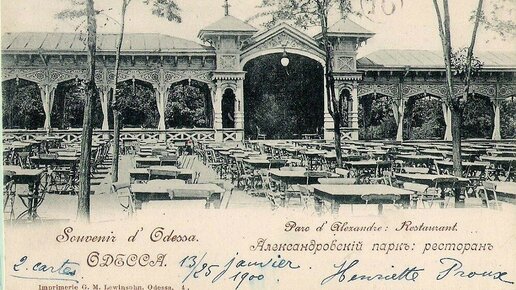 Souvenir d' Odessa.
Parc d' Alexandre: Restaurant.
ОДЕССА.
Александровскій паркъ: ресторанъ
2 cartes
13/25 janvier 1900
Henriette Proux
Imprimerie G. M. Lewinsohn, Odessa.